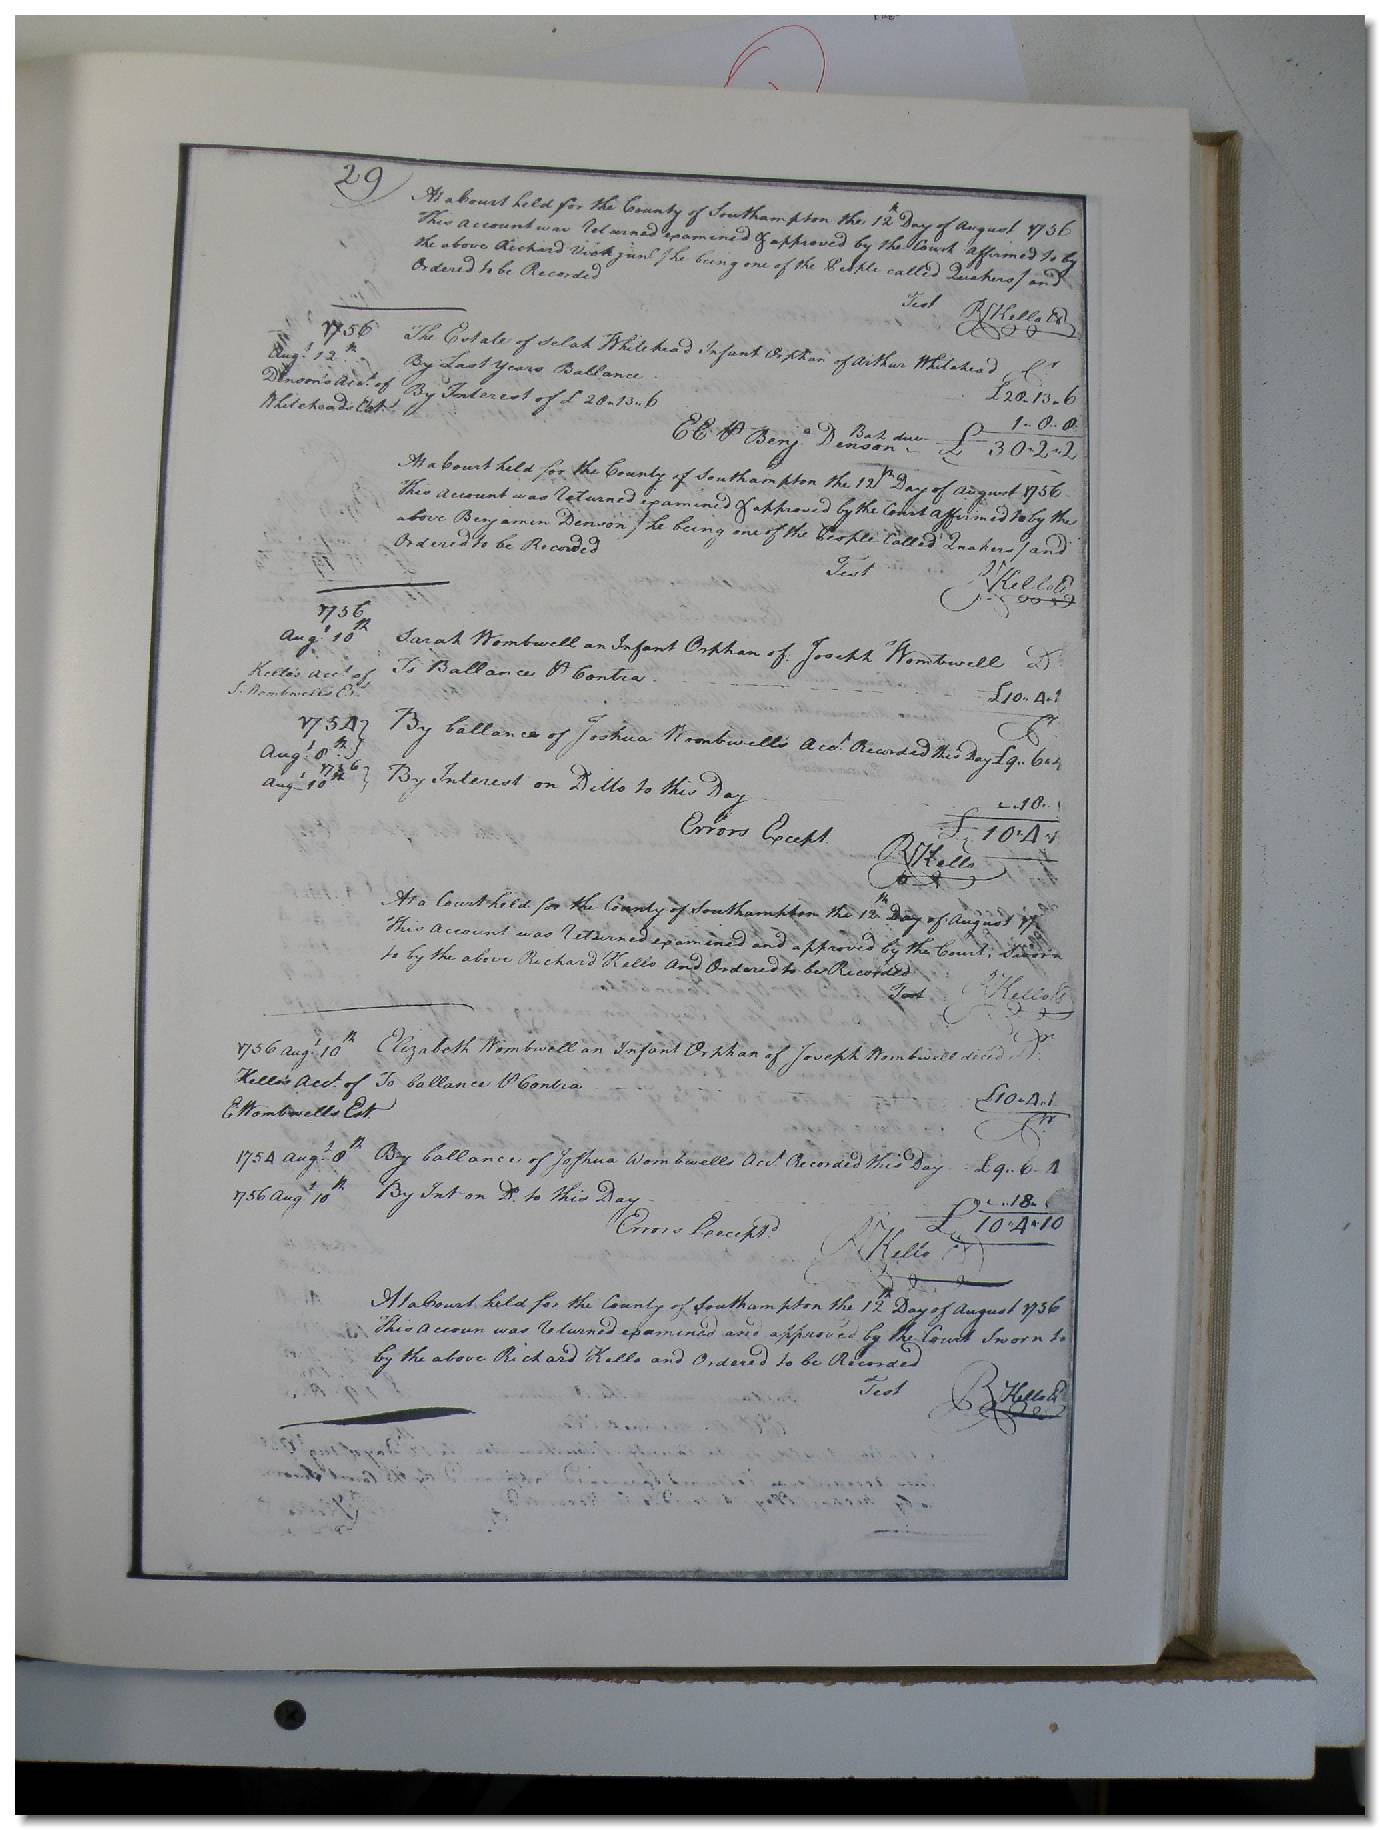 29
At a Court held for the County of Southampton the 12th Day of August 1756
This Account was Returned examined & approved by the Court affirmed to by
the above Richard Vick junr /he being one of the People called Quakers/ and
Ordered to be Recorded
Test RKello Cl
1756 The Estate of Selah Whitehead Infant Orphan of Arthur Whitehead Cr
Augt 12th By Last Years Ballance £28.13.6
Denson's Acct. of By Interest of £28.13.6 1.8.8
Whitehead's Est.
EE P Benja Denson Bal. due £30.2.2
At a Court held for the County of Southampton the 12th Day of August 1756
This Account was Returned examined & approved by the Court affirmed to by the
above Benjamin Denson /he being one of the People Called Quakers/ and
Ordered to be Recorded
Test RKello Cl
1756
Augt 10th Sarah Wombwell an Infant Orphan of Joseph Wombwell Dr
Kello's Acct. of To Ballance P Contra £10.4.
S. Wombwells Est. Cr
1754 Augt 8th By ballance of Joshua Wombwells Acct. Recorded this Day £9.6.4
1756 Augt 10th By Interest on Ditto to this Day .18.
Errors Except. £10.4.
RKello
At a Court held for the County of Southampton the 12th Day of August 17
This Account was Returned examined and approved by the Court, Sworn
to by the above Richard Kello and Ordered to be Recorded
Test RKello Cl
1756 Augt 10th Elizabeth Wombwell an Infant Orphan of Joseph Wombwell deced Dr.
Kello's Acct. of To ballance P Contra £10.4.
E Wombwells Est. Cr
1754 Augt 8th By ballance of Joshua Wombwells Acct. Recorded this Day £9.6.4
1756 Augt 10th By Int on Do. to this Day .18.
Errors Exceptd £10.4.10
RKello
At a Court held for the County of Southampton the 12th Day of August 1756
This Accoun was Returned examined and approved by the Court Sworn to
by the above Richard Kello and Ordered to be Recorded
Test RKello Cl